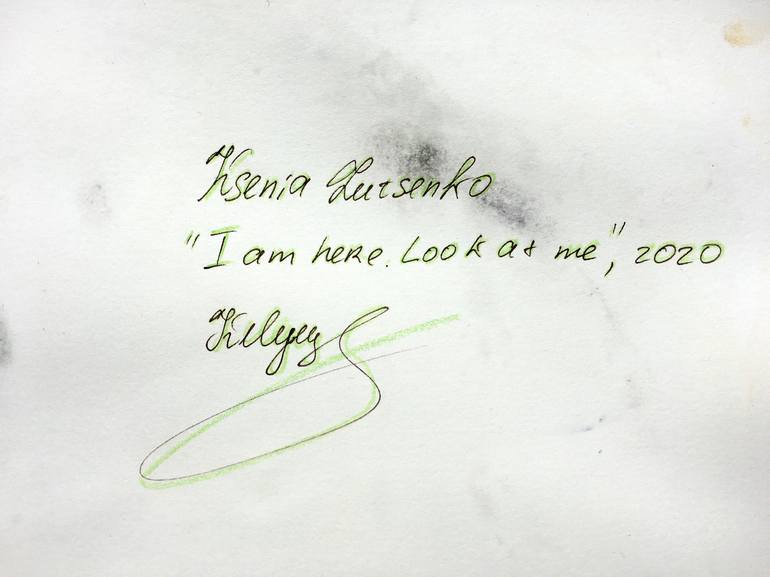 Ksenia Lutsenko
"I am here. Look at me", 2020